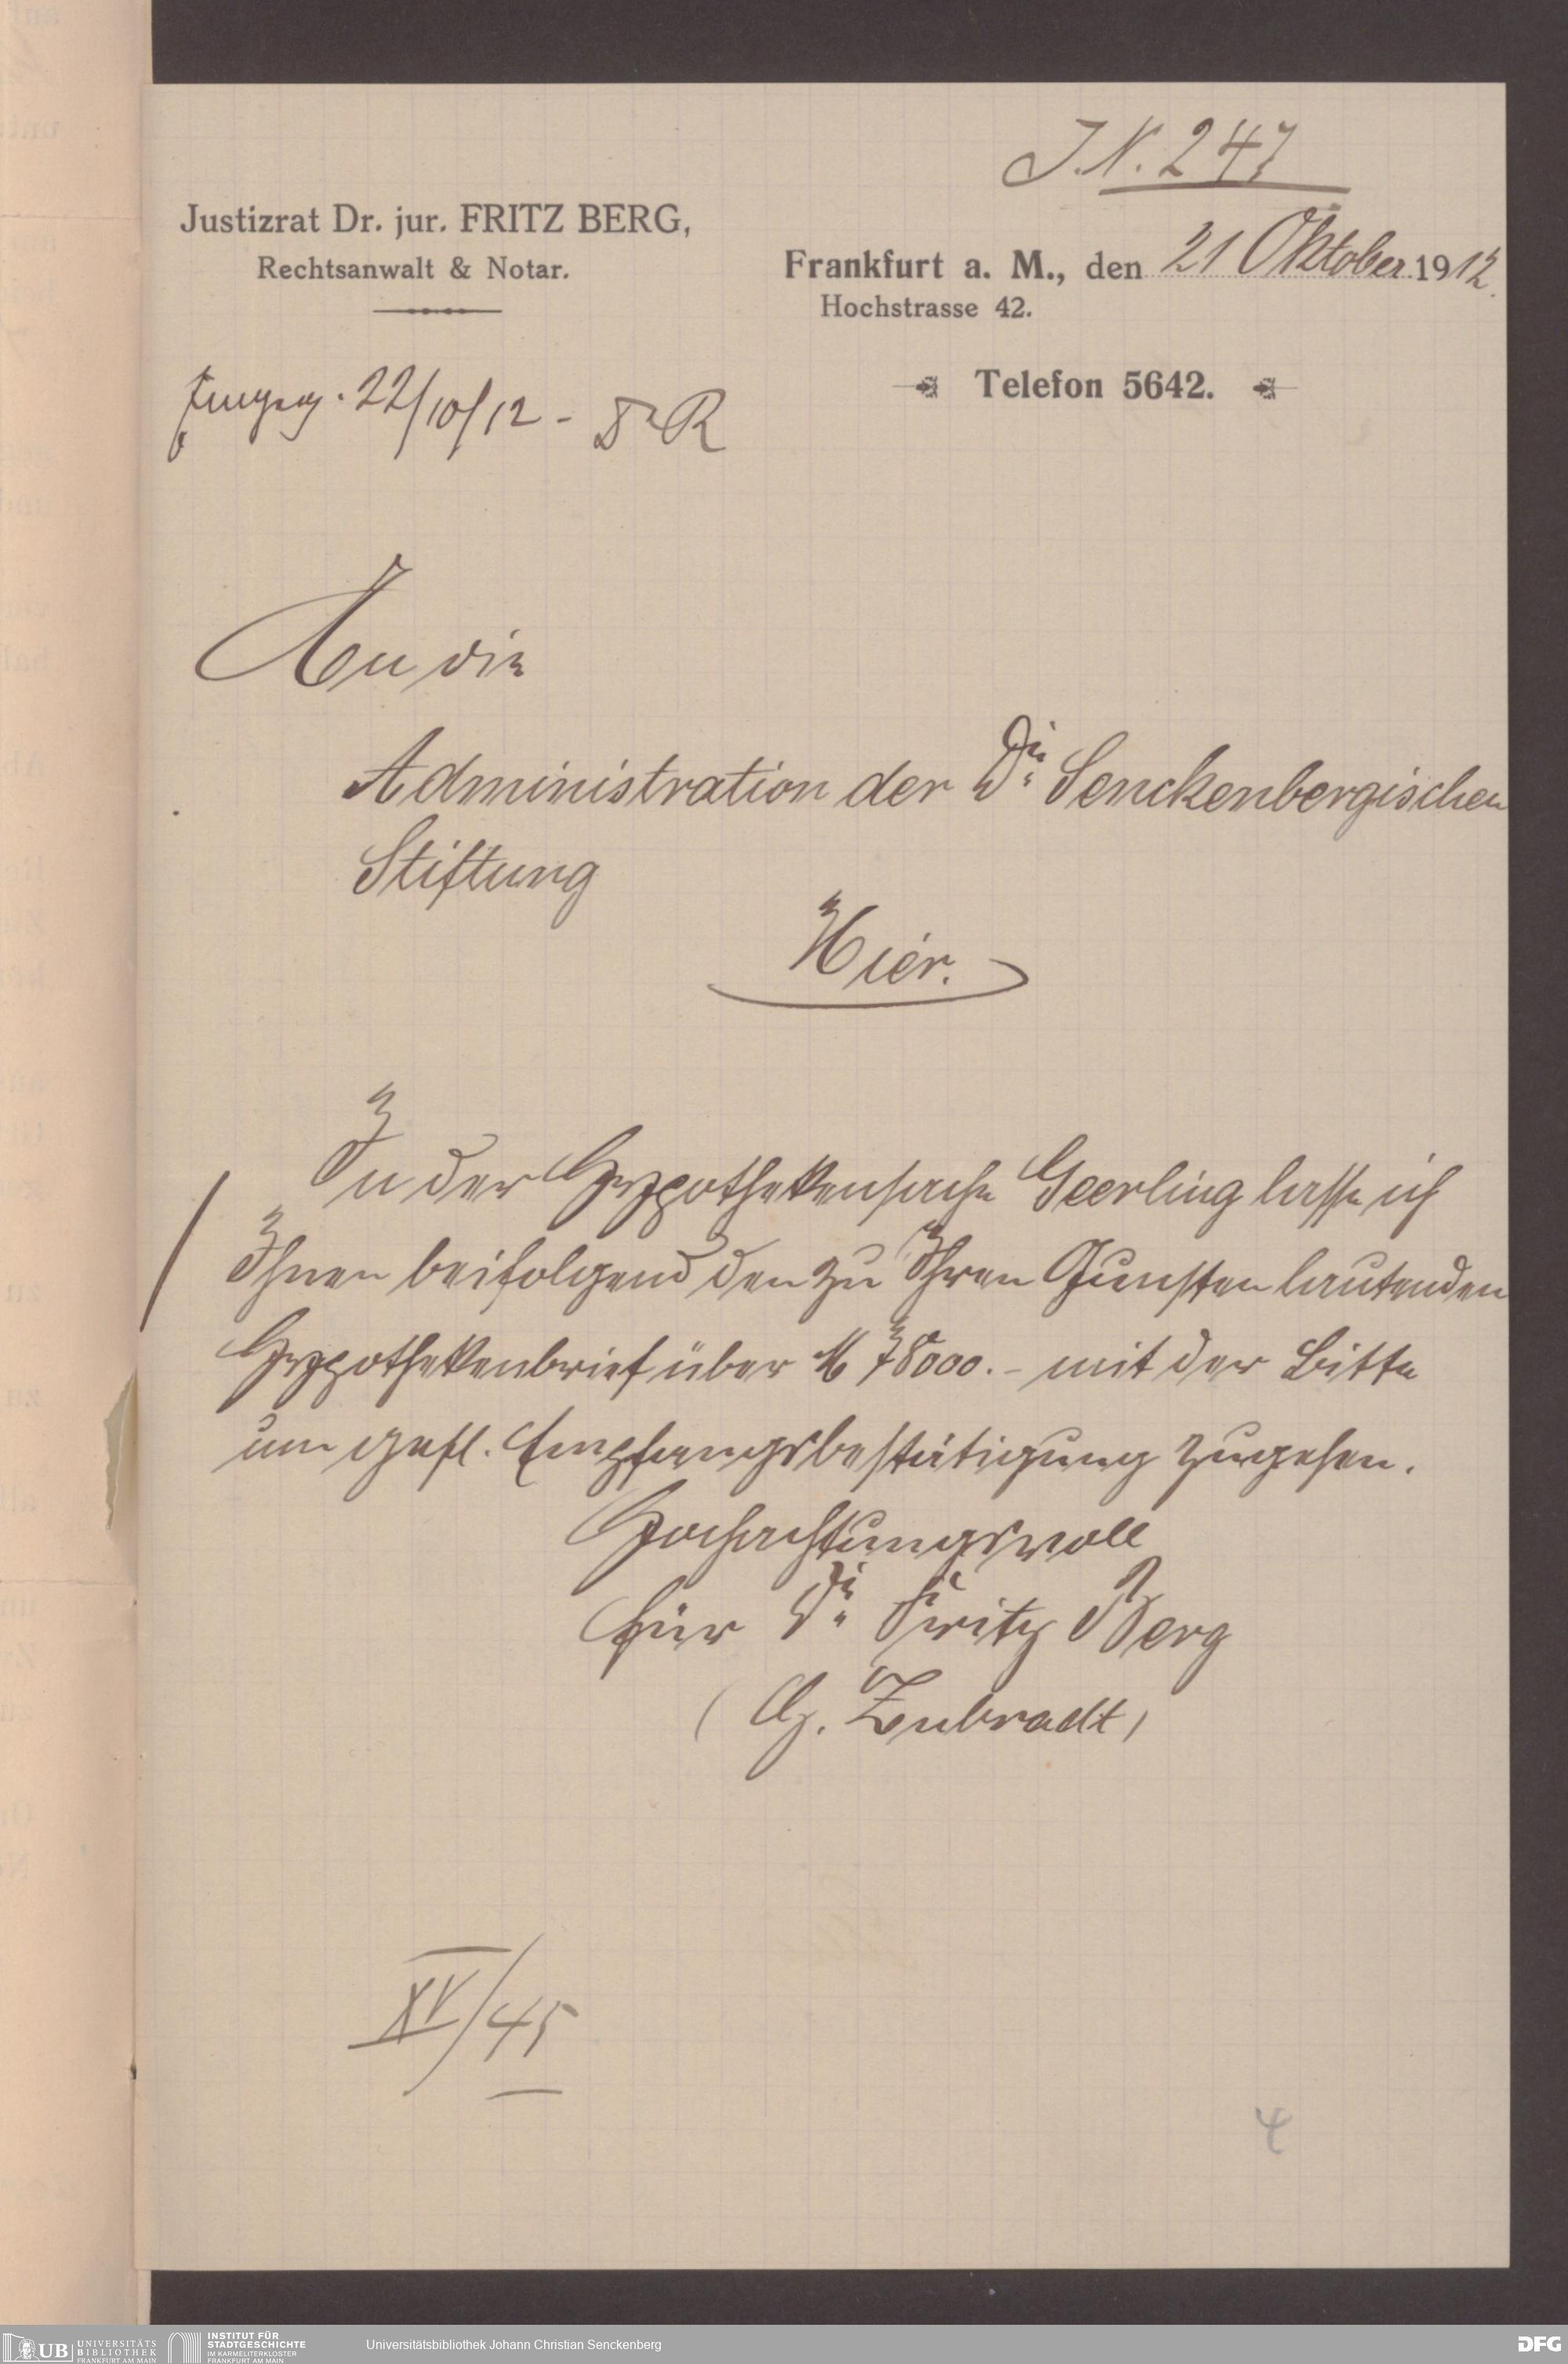 J.N. 247
Justizrat Dr. jur. FRITZ BERG,
Rechtsanwalt & Notar.
Frankfurt a. M., den 21 Oktober 1912.
Hochstrasse 42.
Telefon 5642.
Eingeg. 22/10/12 - DrR
An die
Administration der Dr. Senckenbergischen
Stiftung
Hier.
In der Hypothekensache Geerling lasse ich
Ihnen beifolgend den zu Ihren Gunsten lautenden
Hypothekenbrief über M 78000.- mit der Bitte
um gefl. Empfangsbestätigung zugehen.
Hochachtungsvoll
für Dr. Fritz Berg
(G. Zubradt)
XV/45
4
UB UNIVERSITÄTS
BIBLIOTHEK
FRANKFURT AM MAIN
INSTITUT FÜR
STADTGESCHICHTE
IM KARMELITERKLOSTER
FRANKFURT AM MAIN
Universitätsbibliothek Johann Christian Senckenberg
DFG